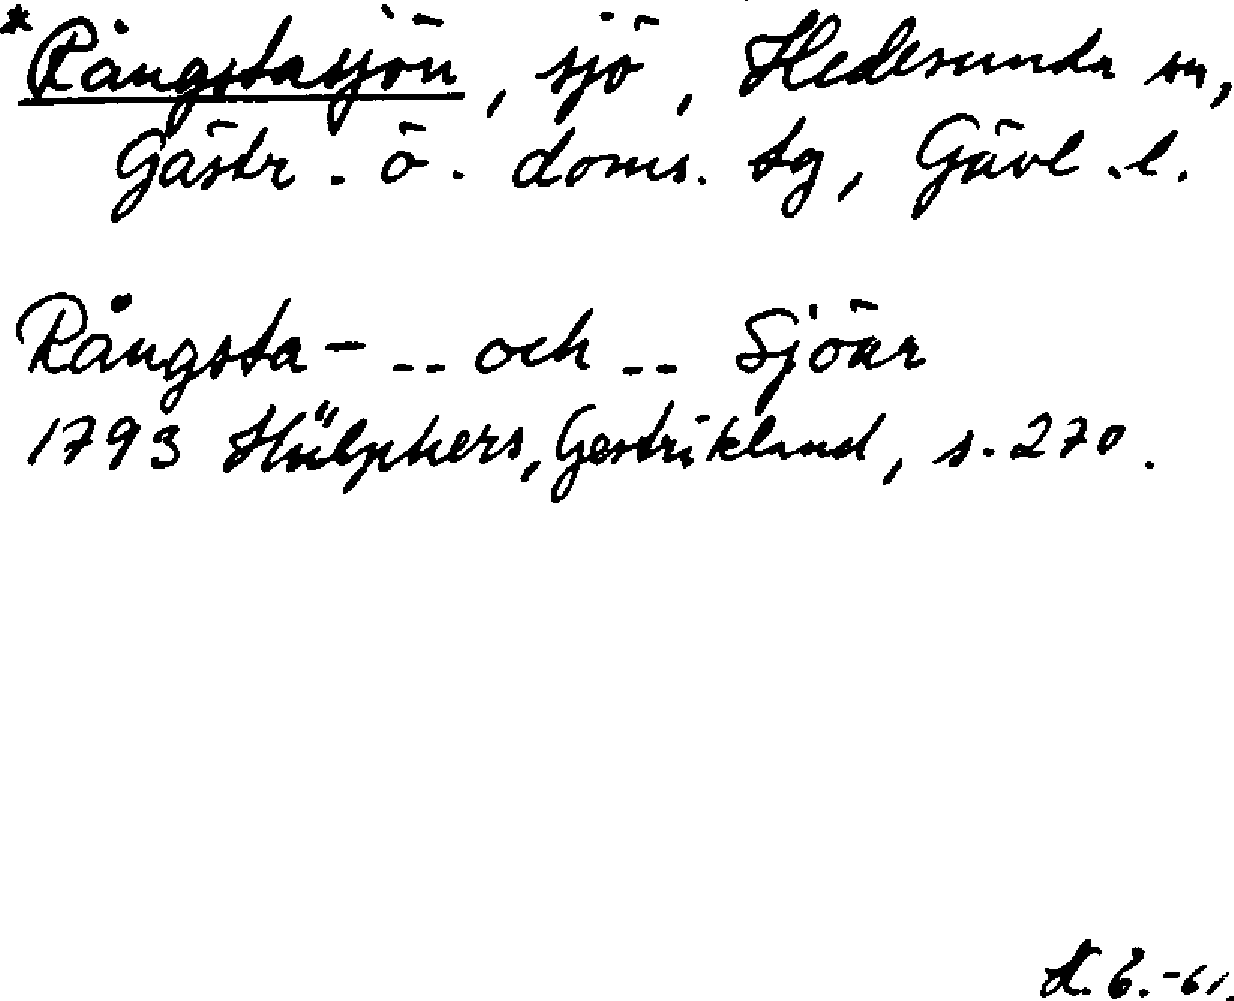 * Rångstasjön, sjö, Hedesunda sn,
Gästr. ö. doms. tg, Gävl. l.
Rångsta- -- och -- Sjöar
1793 Hülphers, Gestrikland, s. 270.